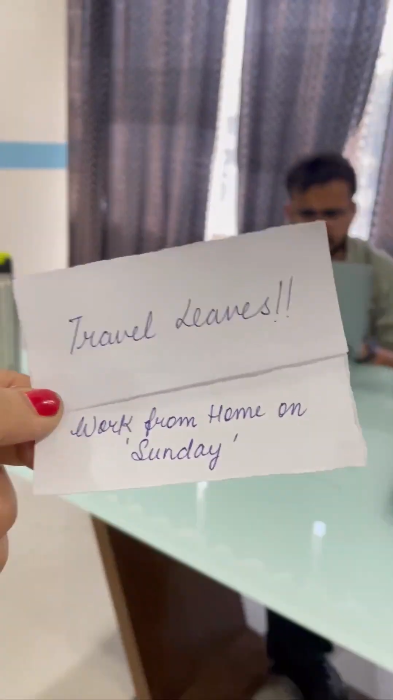 Travel Leaves!!
Work from Home on
'Sunday'